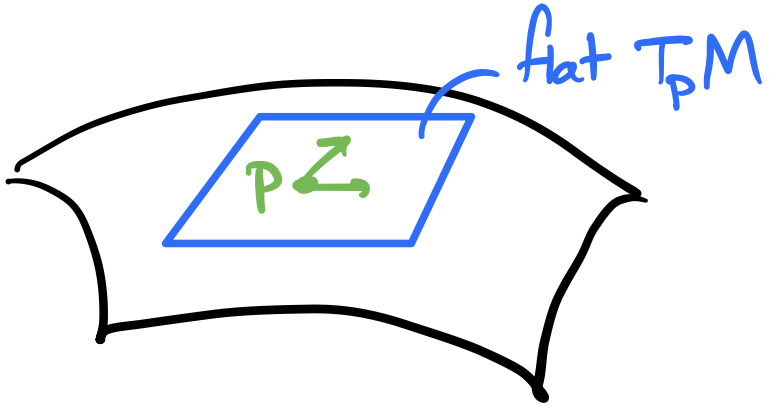 flat TpM
p